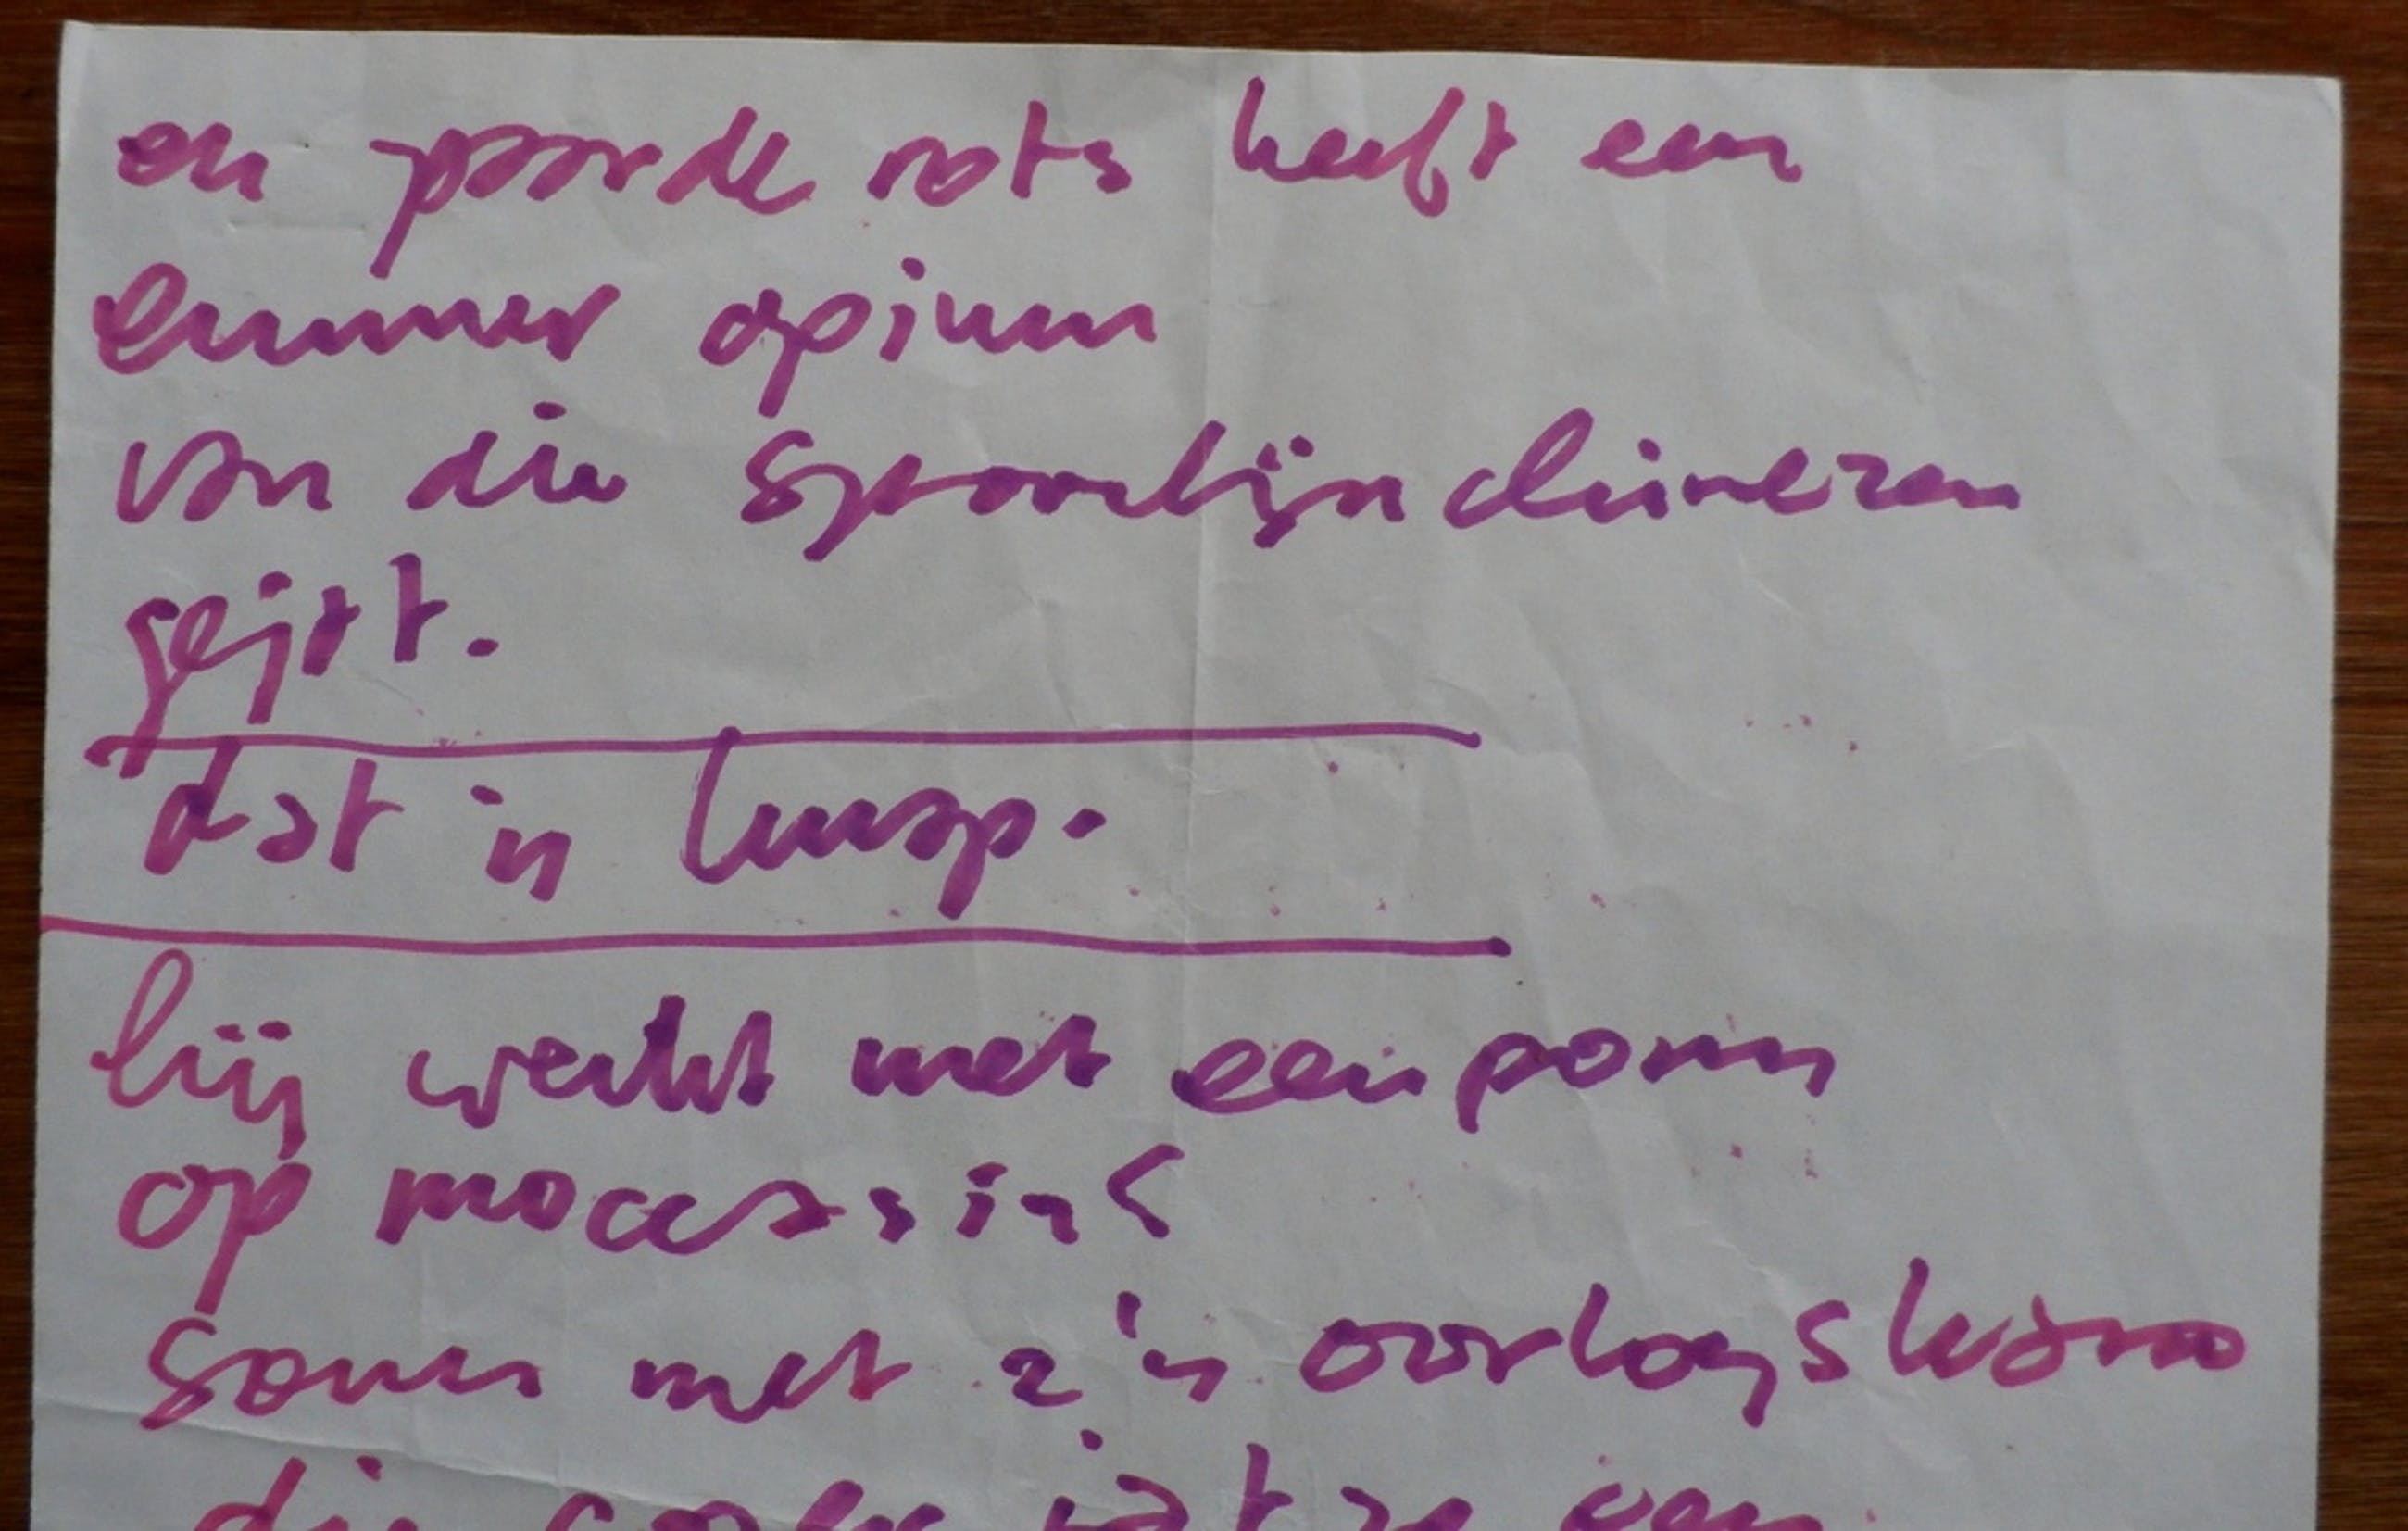 en paarde rots heeft een
emmer opium
van die spoorlijnchinezen
gejat.
dat is knap.
hij werkt met een pony
op moccassins
samen met z'n oorlogskano